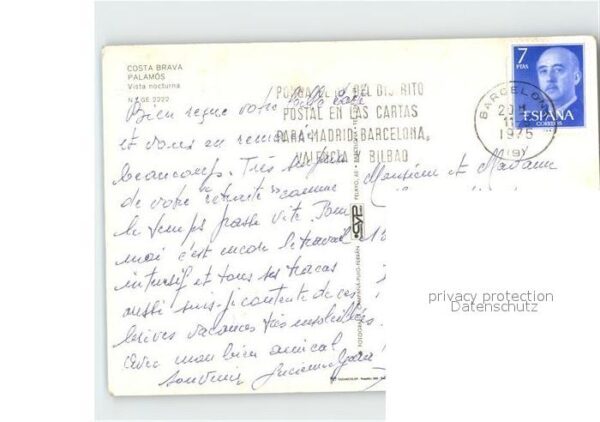 COSTA BRAVA
PALAMÓS
Vista nocturna
7
PTAS
ESPAÑA
CORREOS
BARCELONA
1975
PONGA EL Nº DEL DISTRITO
POSTAL EN LAS CARTAS
PARA MADRID, BARCELONA,
VALENCIA BILBAO
Bien reçue votre belle
et vous en remercie
beaucoup. Très
de votre retraite comme
le temps passe vite. Pour
moi c'est encore le travail
intensif et tous ses tracas
aussi suis-je contente de ces
brèves vacances très ensoleillées.
Avec mon bien amical
souvenir
Monsieur et Madame
privacy protection
Datenschutz